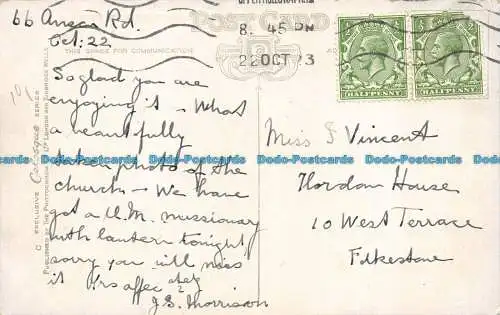 66 Angca Rd.
Oct: 22
POST CARD
THIS SPACE FOR COMMUNICATION
8. 45 PM
22 OCT 23
HALFPENNY
HALFPENNY
So glad you are
enjoying it - What
a beautifully
taken photo of the
church - We have
got a U.M. missionary
with lantern tonight
sorry you will miss
it Yrs affec ately
J.S. Morrison
Miss F Vincent
Hordon House
10 West Terrace
Folkestone
EXCLUSIVE Celesque SERIES
PUBLISHED BY THE PHOTOCHROM CO. LTD LONDON AND TUNBRIDGE WELLS
Postcards Postcards Postcards Postcards Postcards